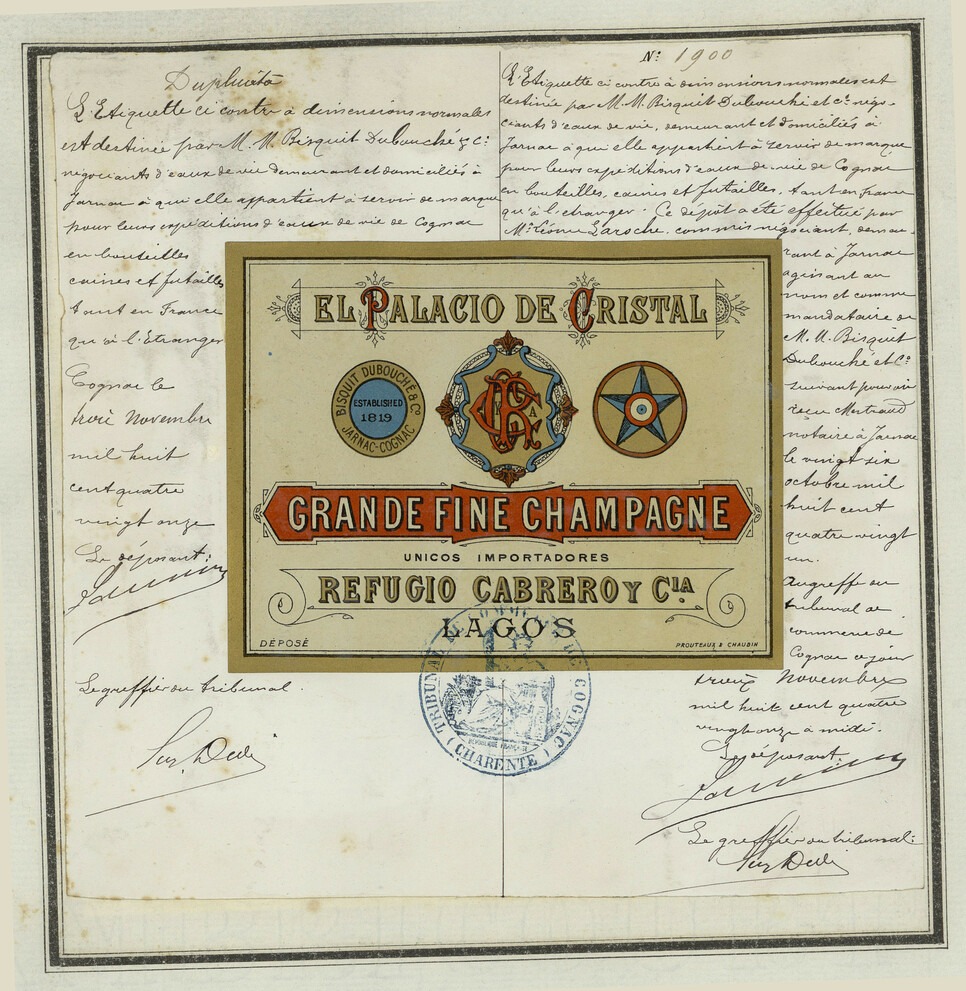 Duplicata
L'Etiquette ci contre à dimensions normales
est destinée par M. M. Bisquit Dubouché & Cie
négociants d'eaux de vie demeurant et domiciliés à
Jarnac à qui elle appartient à servir de marque
pour leurs expéditions d'eaux de vie de Cognac
en bouteilles
caisses et futailles
tant en France
qu'à l'Etranger
Cognac le
trois Novembre
mil huit
cent quatre
vingt onze
Le déposant:
Le greffier du tribunal.
No: 1900
L'Etiquette ci contre à dimensions normales est
destinée par M. M. Bisquit Dubouché et Cie négo-
ciants d'eaux de vie, demeurant et domiciliés à
Jarnac à qui elle appartient à servir de marque
pour leurs expéditions d'eaux de vie de Cognac
en bouteilles, caisses et futailles, tant en france
qu'à l'étranger. Ce dépôt a été effectué par
Mr Laroche, commis négociant, demeu-
rant à Jarnac
agissant au
nom et comme
mandataire de
M. M. Bisquit
Dubouché et Cie
suivant pouvoir
reçu Mertraud
notaire à Jarnac
le vingt six
octobre mil
huit cent
quatre vingt
Au greffe du
tribunal de
commerce de
Cognac ce jour
Novembre
mil huit cent quatre
vingt onze à midi.
Le déposant:
Le greffier du tribunal:
EL PALACIO DE CRISTAL
BISQUIT DUBOUCHÉ & Co
ESTABLISHED
1819
JARNAC-COGNAC
GRANDE FINE CHAMPAGNE
UNICOS IMPORTADORES
REFUGIO CABRERO Y CIA
LAGOS
DÉPOSÉ
PROUTEAUX & CHAUBIN
TRIBUNAL DE COMMERCE DE COGNAC
(CHARENTE)